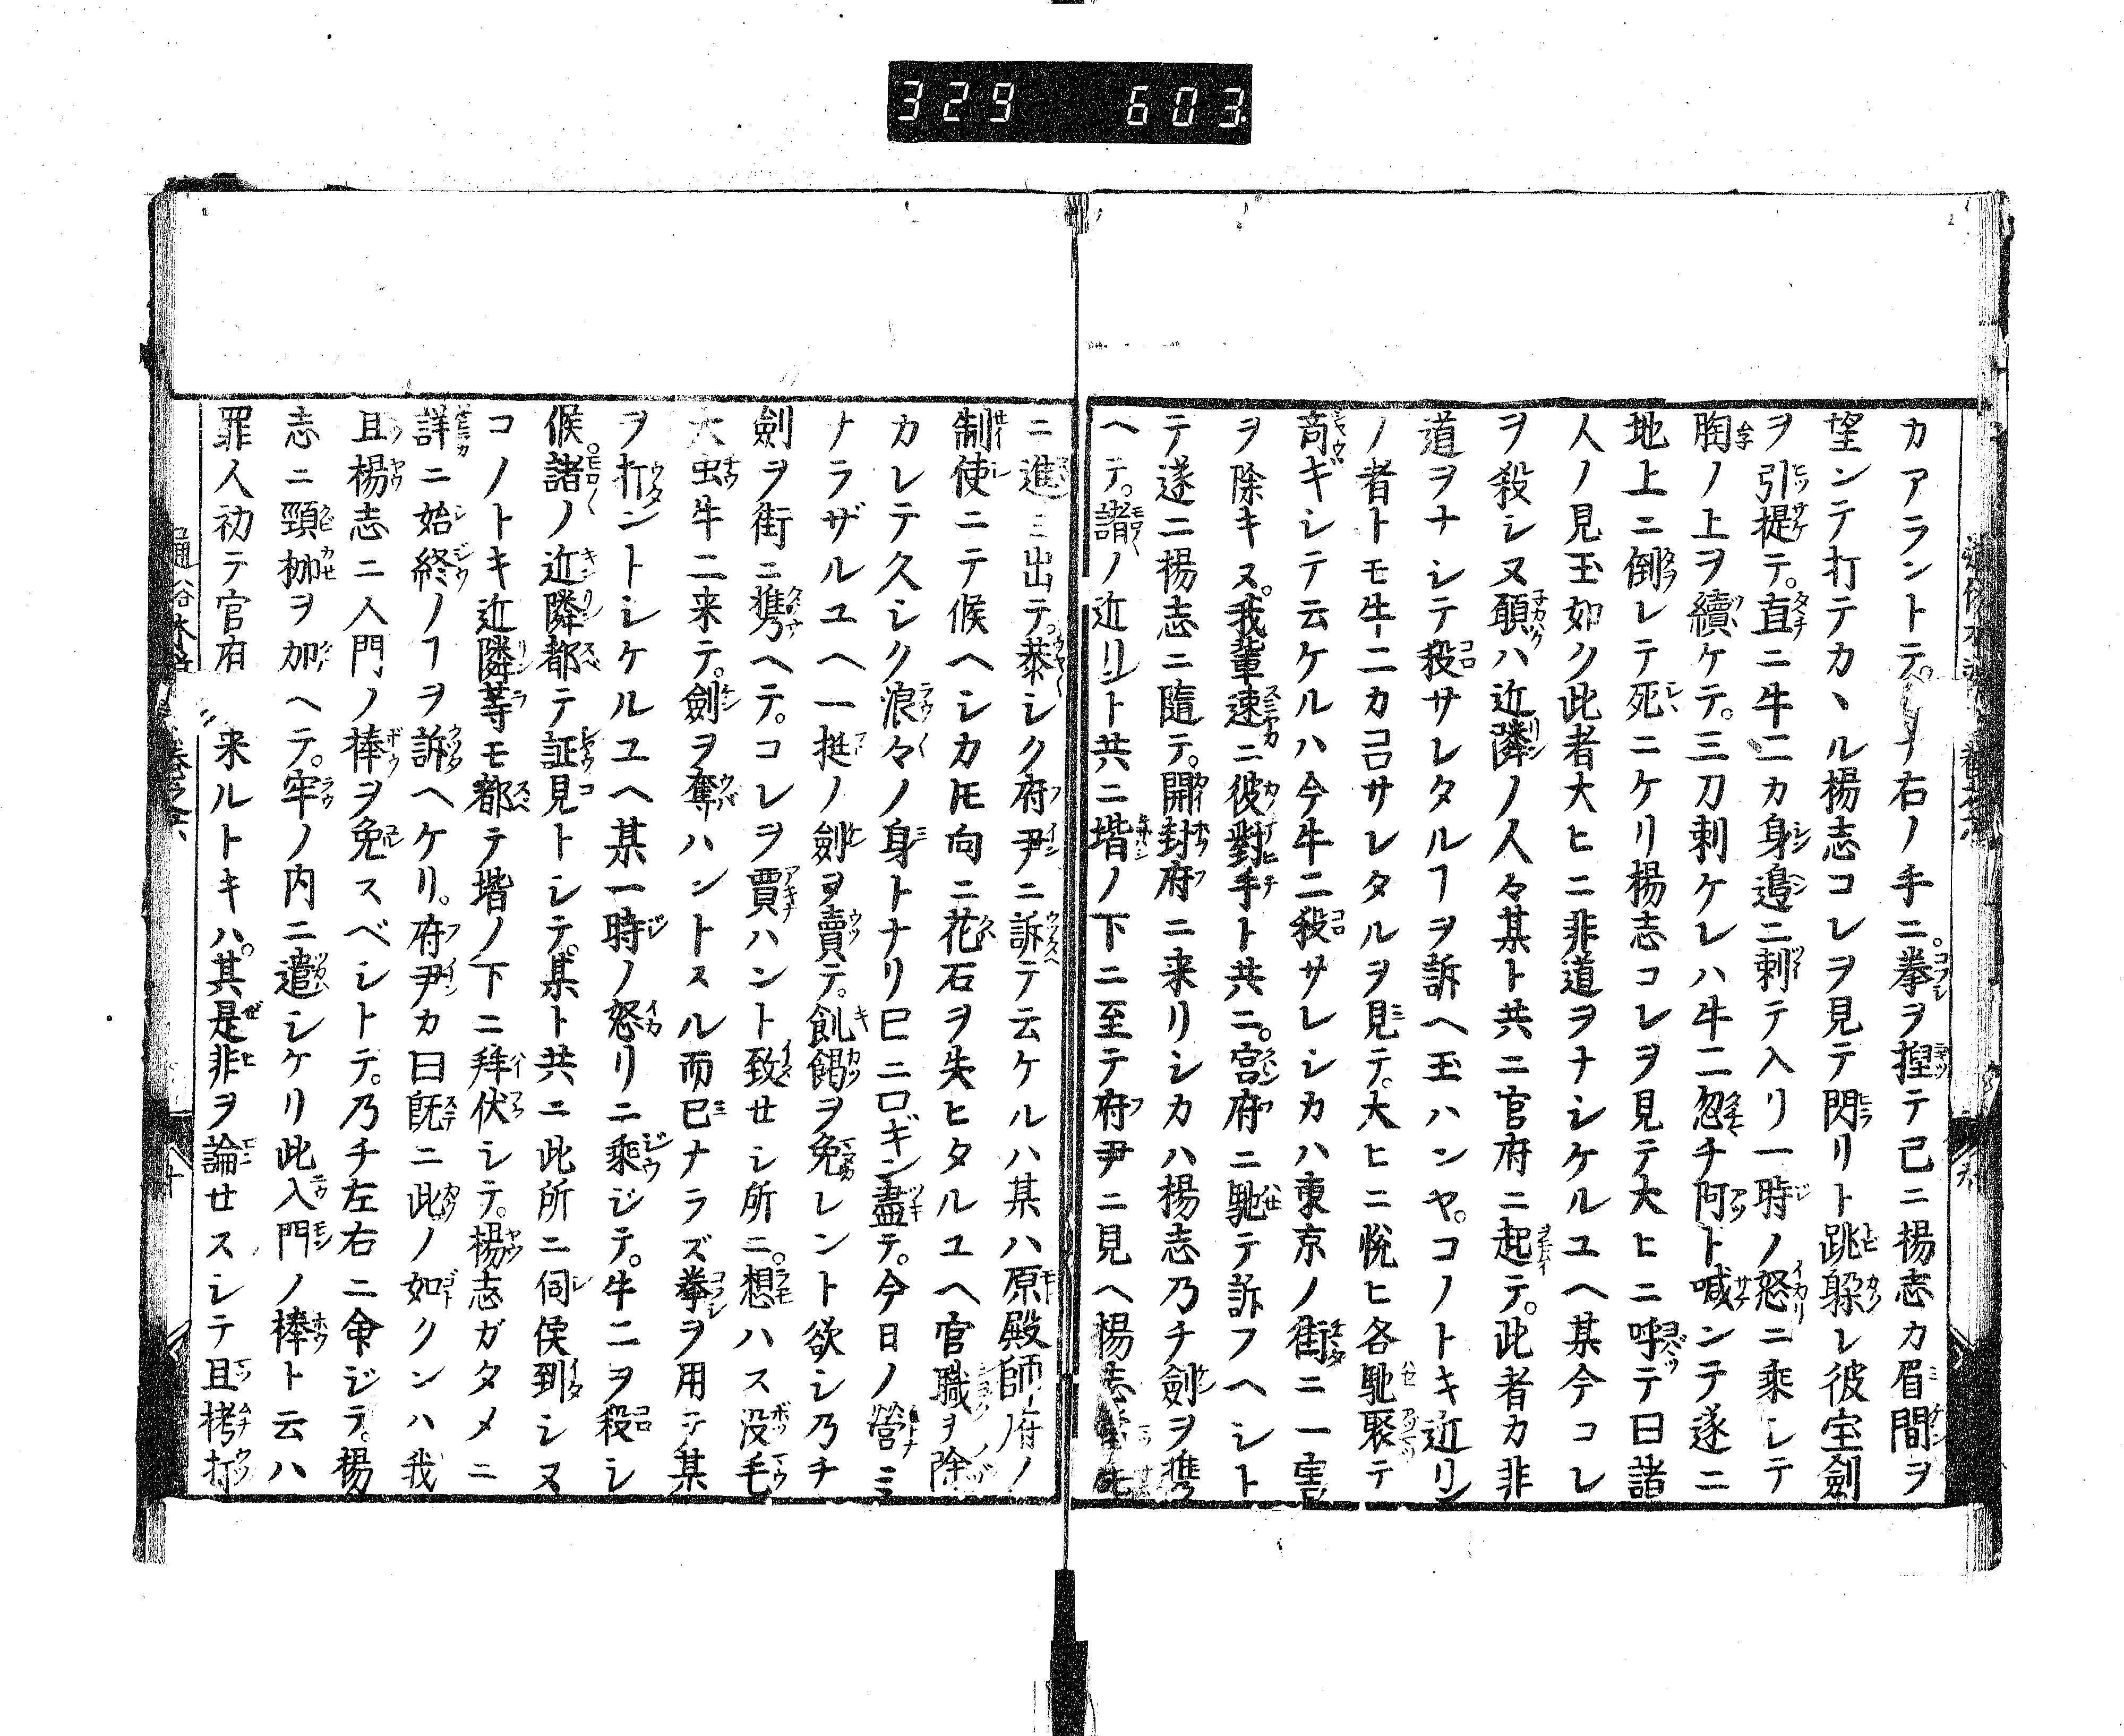 329 603
カアラントテ。右ノ手ニ。拳ヲ揑テ已ニ楊志カ眉間ヲ
望ンテ打テカヽル楊志コレヲ見テ閃リト跳躱レ彼宝劍
ヲ引提テ。直ニ牛二カ身邉ニ刺テ入リ一時ノ怒ニ乘シテ
胸ノ上ヲ續ケテ。三刀刺ケレハ牛二忽チ阿ト喊ンテ遂ニ
地上ニ倒レテ死ニケリ楊志コレヲ見テ大ヒニ呼テ曰諸
人ノ見玉如ク此者大ヒニ非道ヲナシケルユヘ某今コレ
ヲ殺シヌ願ハ近隣ノ人々某ト共ニ官府ニ起テ。此者カ非
道ヲナシテ殺サレタルヿヲ訴ヘ玉ハンヤ。コノトキ近リン
ノ者トモ牛二カ殺サレタルヲ見テ。大ヒニ悦ヒ各馳聚テ
商ギシテ云ケルハ今牛二殺サレシカハ東京ノ街ニ一害
ヲ除キヌ。我輩速ニ彼對手ト共ニ。官府ニ馳テ訴フヘシト
テ遂ニ楊志ニ隨テ。開封府ニ来リシカハ楊志乃チ劍ヲ携
ヘテ。諸ノ近リント共ニ堦ノ下ニ至テ府尹ニ見ヘ楊志
ニ進ミ出テ。恭シク府尹ニ訴テ云ケルハ某ハ原殿師府ノ
制使ニテ候ヘシカ𪜈向ニ花石ヲ失ヒタルユヘ官職ヲ除
カレテ久シク浪々ノ身トナリ已ニロギン盡テ。今日ノ營ミ
ナラザルユヘ一挺ノ劍ヲ賣テ。飢餲ヲ免レント欲シ乃チ
劍ヲ街ニ携ヘテ。コレヲ賈ハント致せシ所ニ。想ハス没毛
大虫牛二来テ。劍ヲ奪ハントスル而已ナラズ拳ヲ用テ某
ヲ打ントシケルユヘ某一時ノ怒リニ乘ジテ。牛二ヲ殺シ
候。諸ノ近隣都テ証見トシテ。某ト共ニ此所ニ伺侯到シヌ
コノトキ近隣等モ都テ堦ノ下ニ拜伏シテ。楊志ガタメニ
詳ニ始終ノヿヲ訴ヘケリ。府尹カ曰既ニ此ノ如クンハ我
且楊志ニ入門ノ棒ヲ免スベシトテ。乃チ左右ニ命ジテ。楊
志ニ頸枷ヲ加ヘテ。牢ノ内ニ遣シケリ此入門ノ棒ト云ハ
罪人初テ官府 来ルトキハ。其是非ヲ論せスシテ且拷打